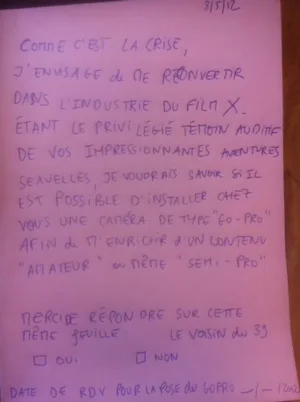 3/5/12
COMME C'EST LA CRISE,
J'ENVISAGE de ME RECONVERTIR
DANS L'INDUSTRIE DU FILM X.
ÉTANT LE PRIVILÉGIÉ TÉMOIN AUDITIF
DE VOS IMPRESSIONNANTES AVENTURES
SEXUELLES, JE VOUDRAIS SAVOIR SI IL
EST POSSIBLE D'INSTALLER CHEZ
VOUS UNE CAMÉRA DE TYPE "GO-PRO"
AFIN de M'ENRICHIR d'UN CONTENU
"AMATEUR" ou MÊME "SEMI-PRO"
MERCI DE RÉPONDRE SUR CETTE
MÊME feuille LE VOISIN du 39
☐ OUI ☐ NON
DATE DE RDV POUR LA POSE DU GOPRO _/_